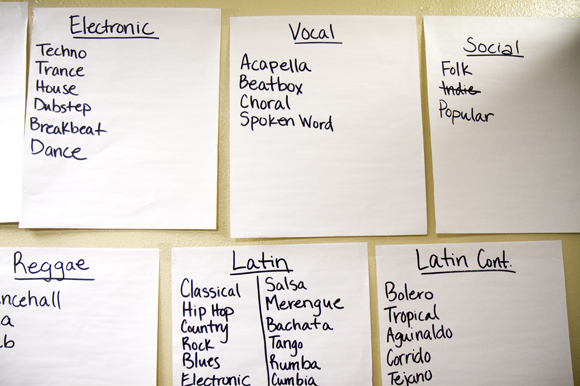 Electronic
Techno
Trance
House
Dubstep
Breakbeat
Dance
Vocal
Acapella
Beatbox
Choral
Spoken Word
Social
Folk
Indie
Popular
Reggae
ncehall
a
b
Latin
Classical
Hip Hop
Country
Rock
Blues
Electronic
Salsa
Merengue
Bachata
Tango
Rumba
Cumbia
Latin Cont.
Bolero
Tropical
Aguinaldo
Corrido
Tejano